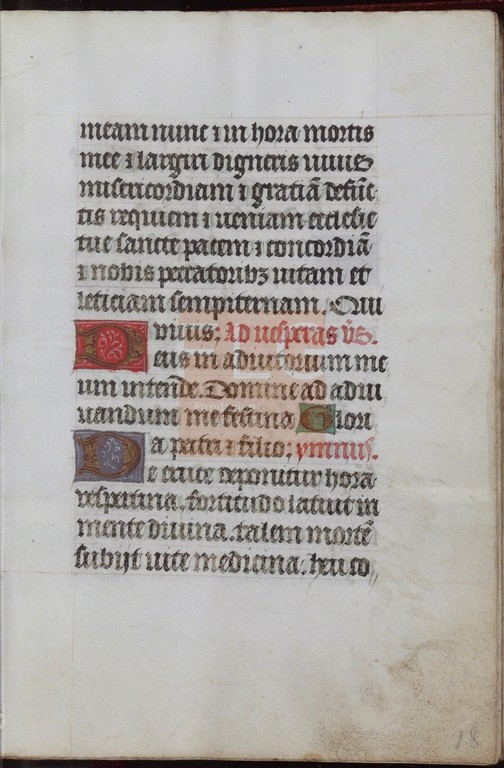 meam nunc ⁊ in hora mortis
mee ⁊ largiri digneris uiuis
misericordiam ⁊ gratiā defūc
tis requiem ⁊ ueniam ecclesie
tue sancte pacem ⁊ concordiā
⁊ nobis peccatoribꝫ uitam et
leticiam sempiternam. Qui
viuis; Ad vesperas v̄s.
Deus in adiutorium me
um intende. Domine ad adiu
uandum me festina Glori
a patri ⁊ filio; ymnus.
De cruce deponitur hora
vespertina. fortitudo latuit in
mente diuina. talem mortē
subijt uite medicina. heu co
18